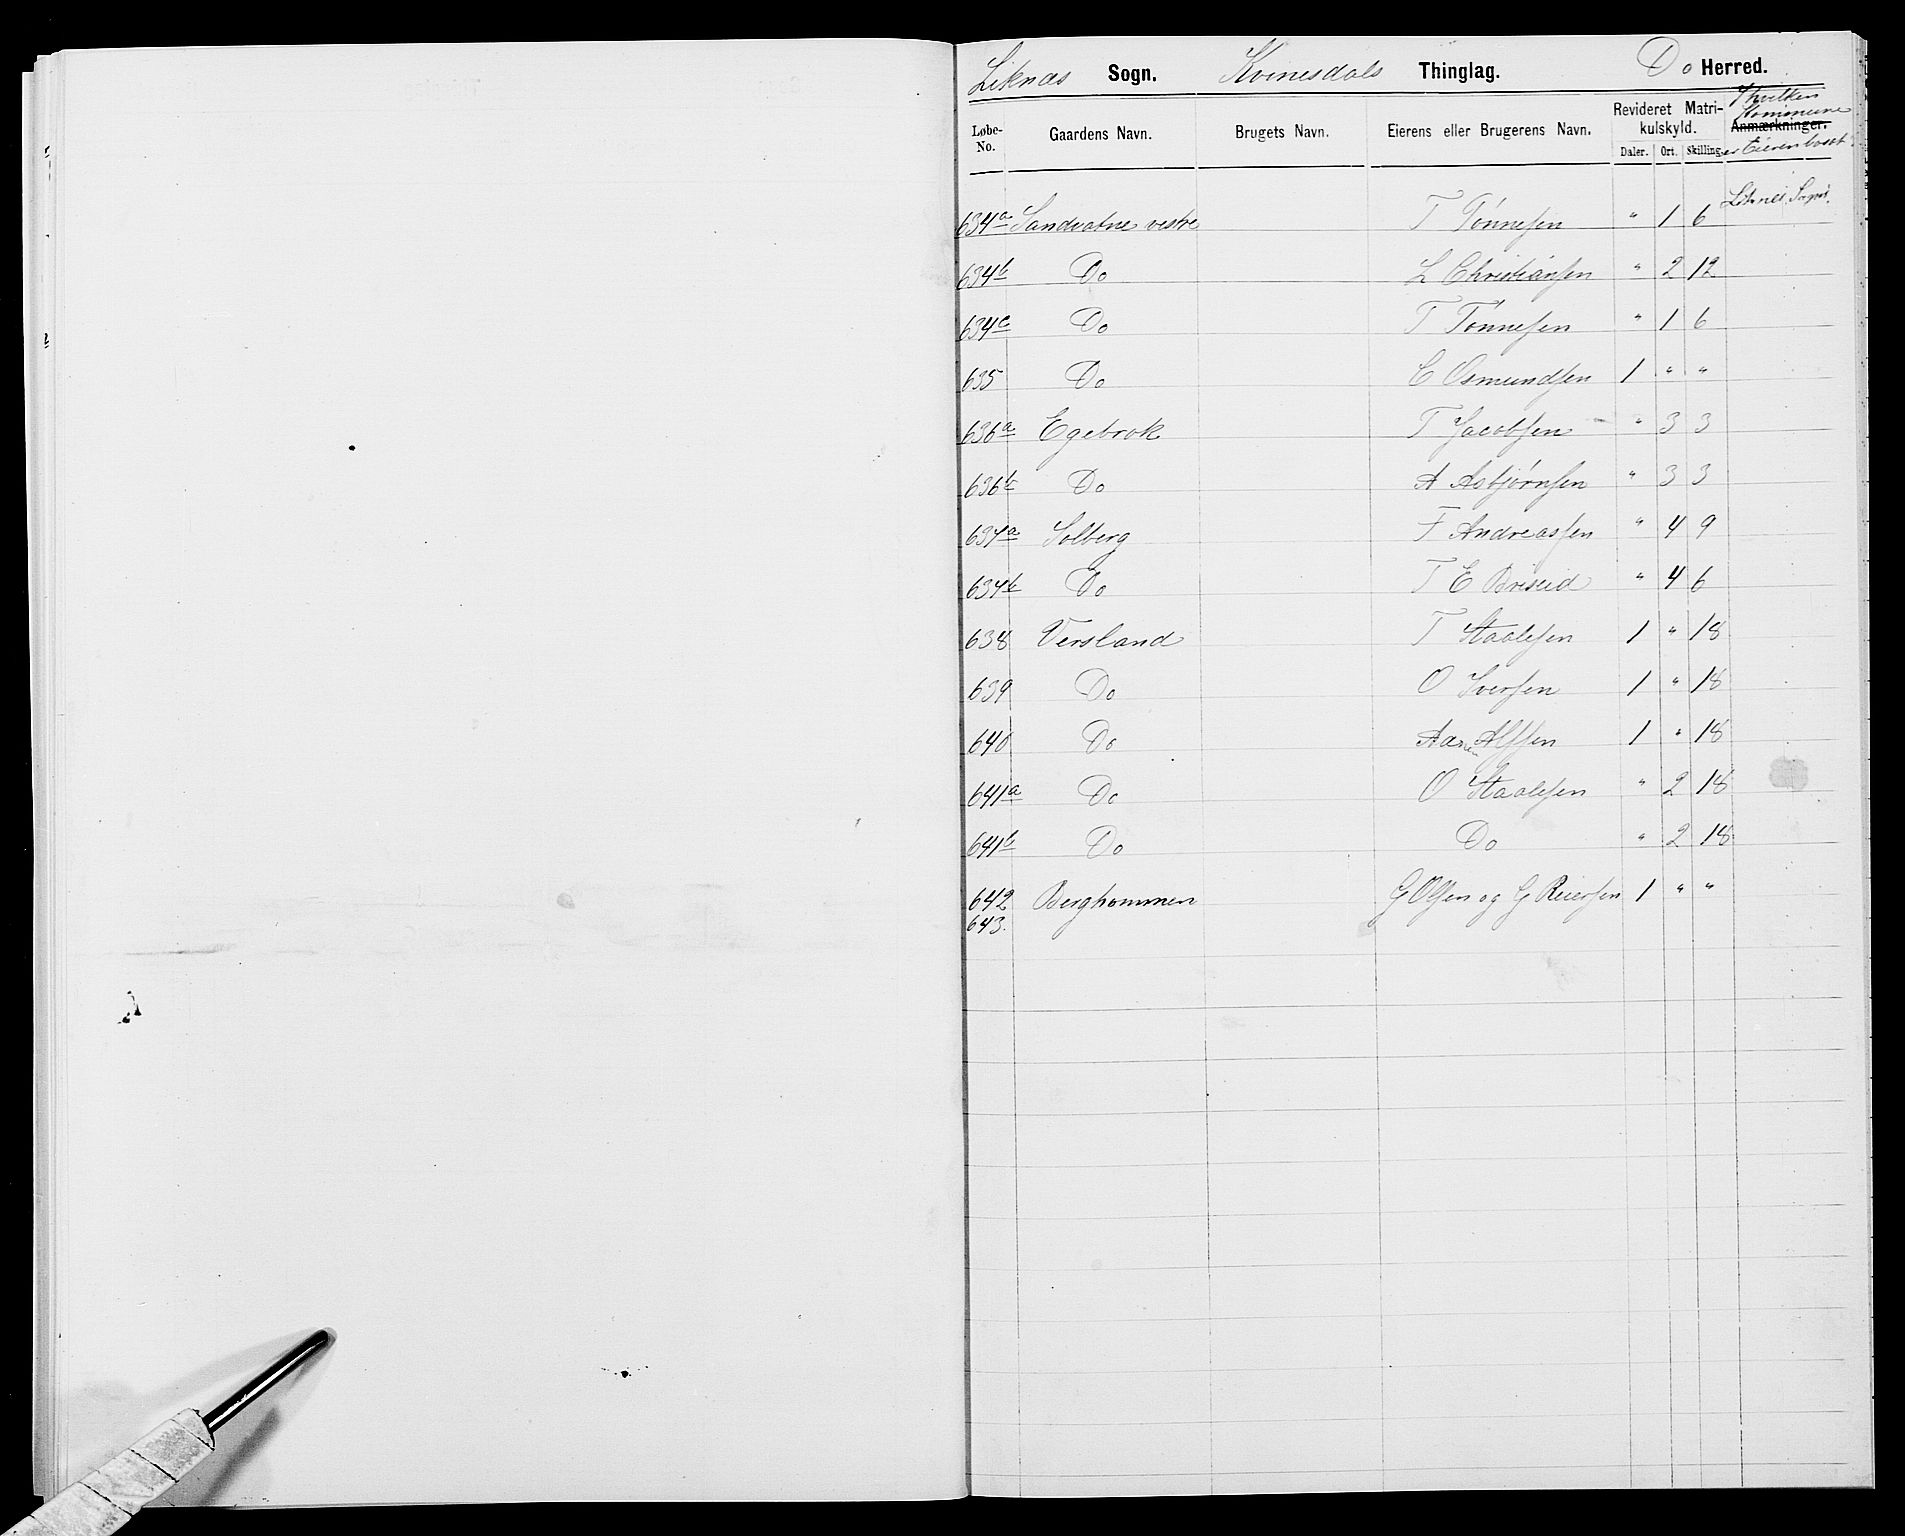 Liknæs Sogn. Kvinesdals Thinglag. Do Herred.
Løbe-No. Gaardens Navn. Brugets Navn. Eierens eller Brugerens Navn. Revideret Matrikulskyld. Daler. Ort. Skilling. Anmærkninger.
I hvilken Kommune er Eieren bosat
634a Sandvatne vestre T Tönnesen " 1 6 Liknes Sogn.
634b Do L Christiansen " 2 12
634c Do T Tönnesen " 1 6
635 Do C Osmundsen 1 " "
636a Egebrok T Jacobsen " 3 3
636b Do A Asbjörnsen " 3 3
637a Solberg F Andreassen " 4 9
637b Do T E Briseid " 4 6
638 Versland T Staalesen 1 " 18
639 Do O Iversen 1 " 18
640 Do Aanen Alfsen 1 " 18
641a Do O Staalesen " 2 18
641b Do Do " 2 18
642 Berghommen G Olsen og G Reiersen 1 " "
643.